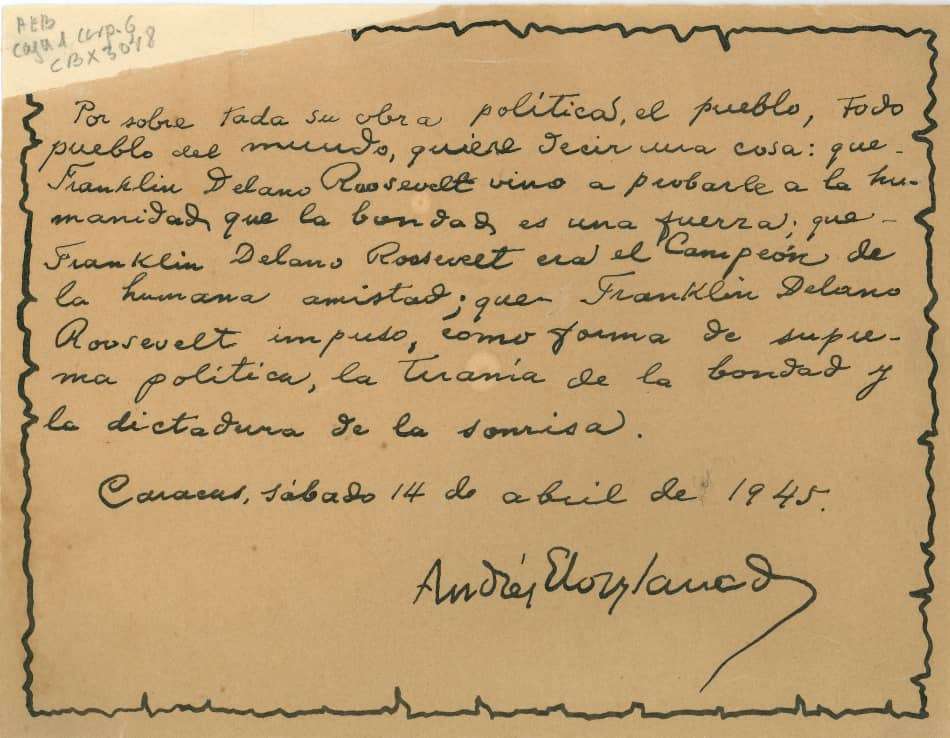 AEB
Caja 1 carp. 6
CBX 3018
Por sobre toda su obra política, el pueblo, todo
pueblo del mundo, quiere decir una cosa: que
Franklin Delano Roosevelt vino a probarle a la hu-
manidad que la bondad es una fuerza; que
Franklin Delano Roosevelt era el Campeón de
la humana amistad; que Franklin Delano
Roosevelt impuso, como forma de supre-
ma política, la tiranía de la bondad y
la dictadura de la sonrisa.
Caracas, sábado 14 de abril de 1945.
Andrés Eloy Blanco